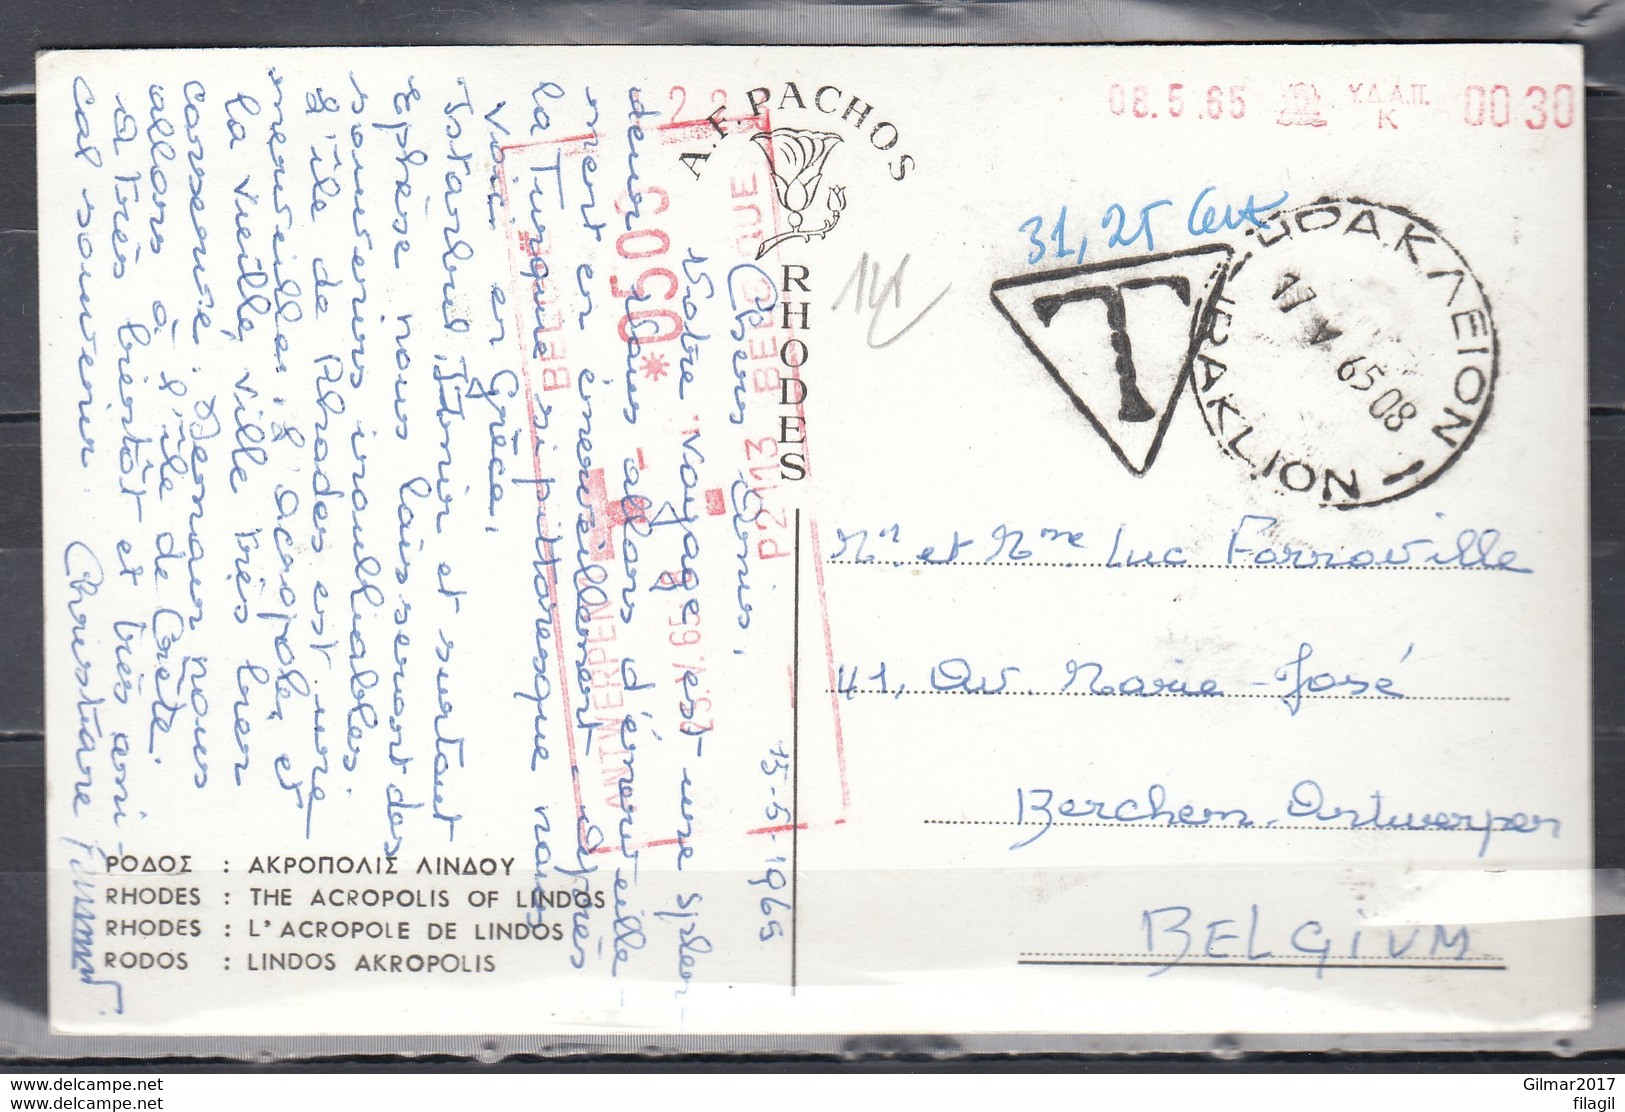 15-5-1965
Chers Amis,
Notre voyage est une splen-
deur. Nous allons d'émerveille-
ment en émerveillement. Après
la Turquie si pittoresque nous
voici en Grèce.
Istanbul, Izmir et surtout
Ephèse nous laisseront des
souvenirs inoubliables.
L'île de Rhodes est une
merveille, l'acropole, et
la vieille ville très bien
conservée. Demain nous
allons à l'île de Crète.
A très bientôt et très ami-
cal souvenir. Christiane
A.F. PACHOS
RHODES
08.5.65 Υ.Δ.Α.Π. Κ 0030
31,25 Cent
T
ΗΡΑΚΛΕΙΟΝ
17 V 65 08
IRAKLION
Mr et Mme Luc Farroville
41, Av. Marie-José
Berchem-Antwerpen
BELGIUM
*0505
P2113
ANTWERPEN
ΡΟΔΟΣ : ΑΚΡΟΠΟΛΙΣ ΛΙΝΔΟΥ
RHODES : THE ACROPOLIS OF LINDOS
RHODES : L'ACROPOLE DE LINDOS
RODOS : LINDOS AKROPOLIS
delcampe.net
delcampe.net
Gilmar2017
filagil